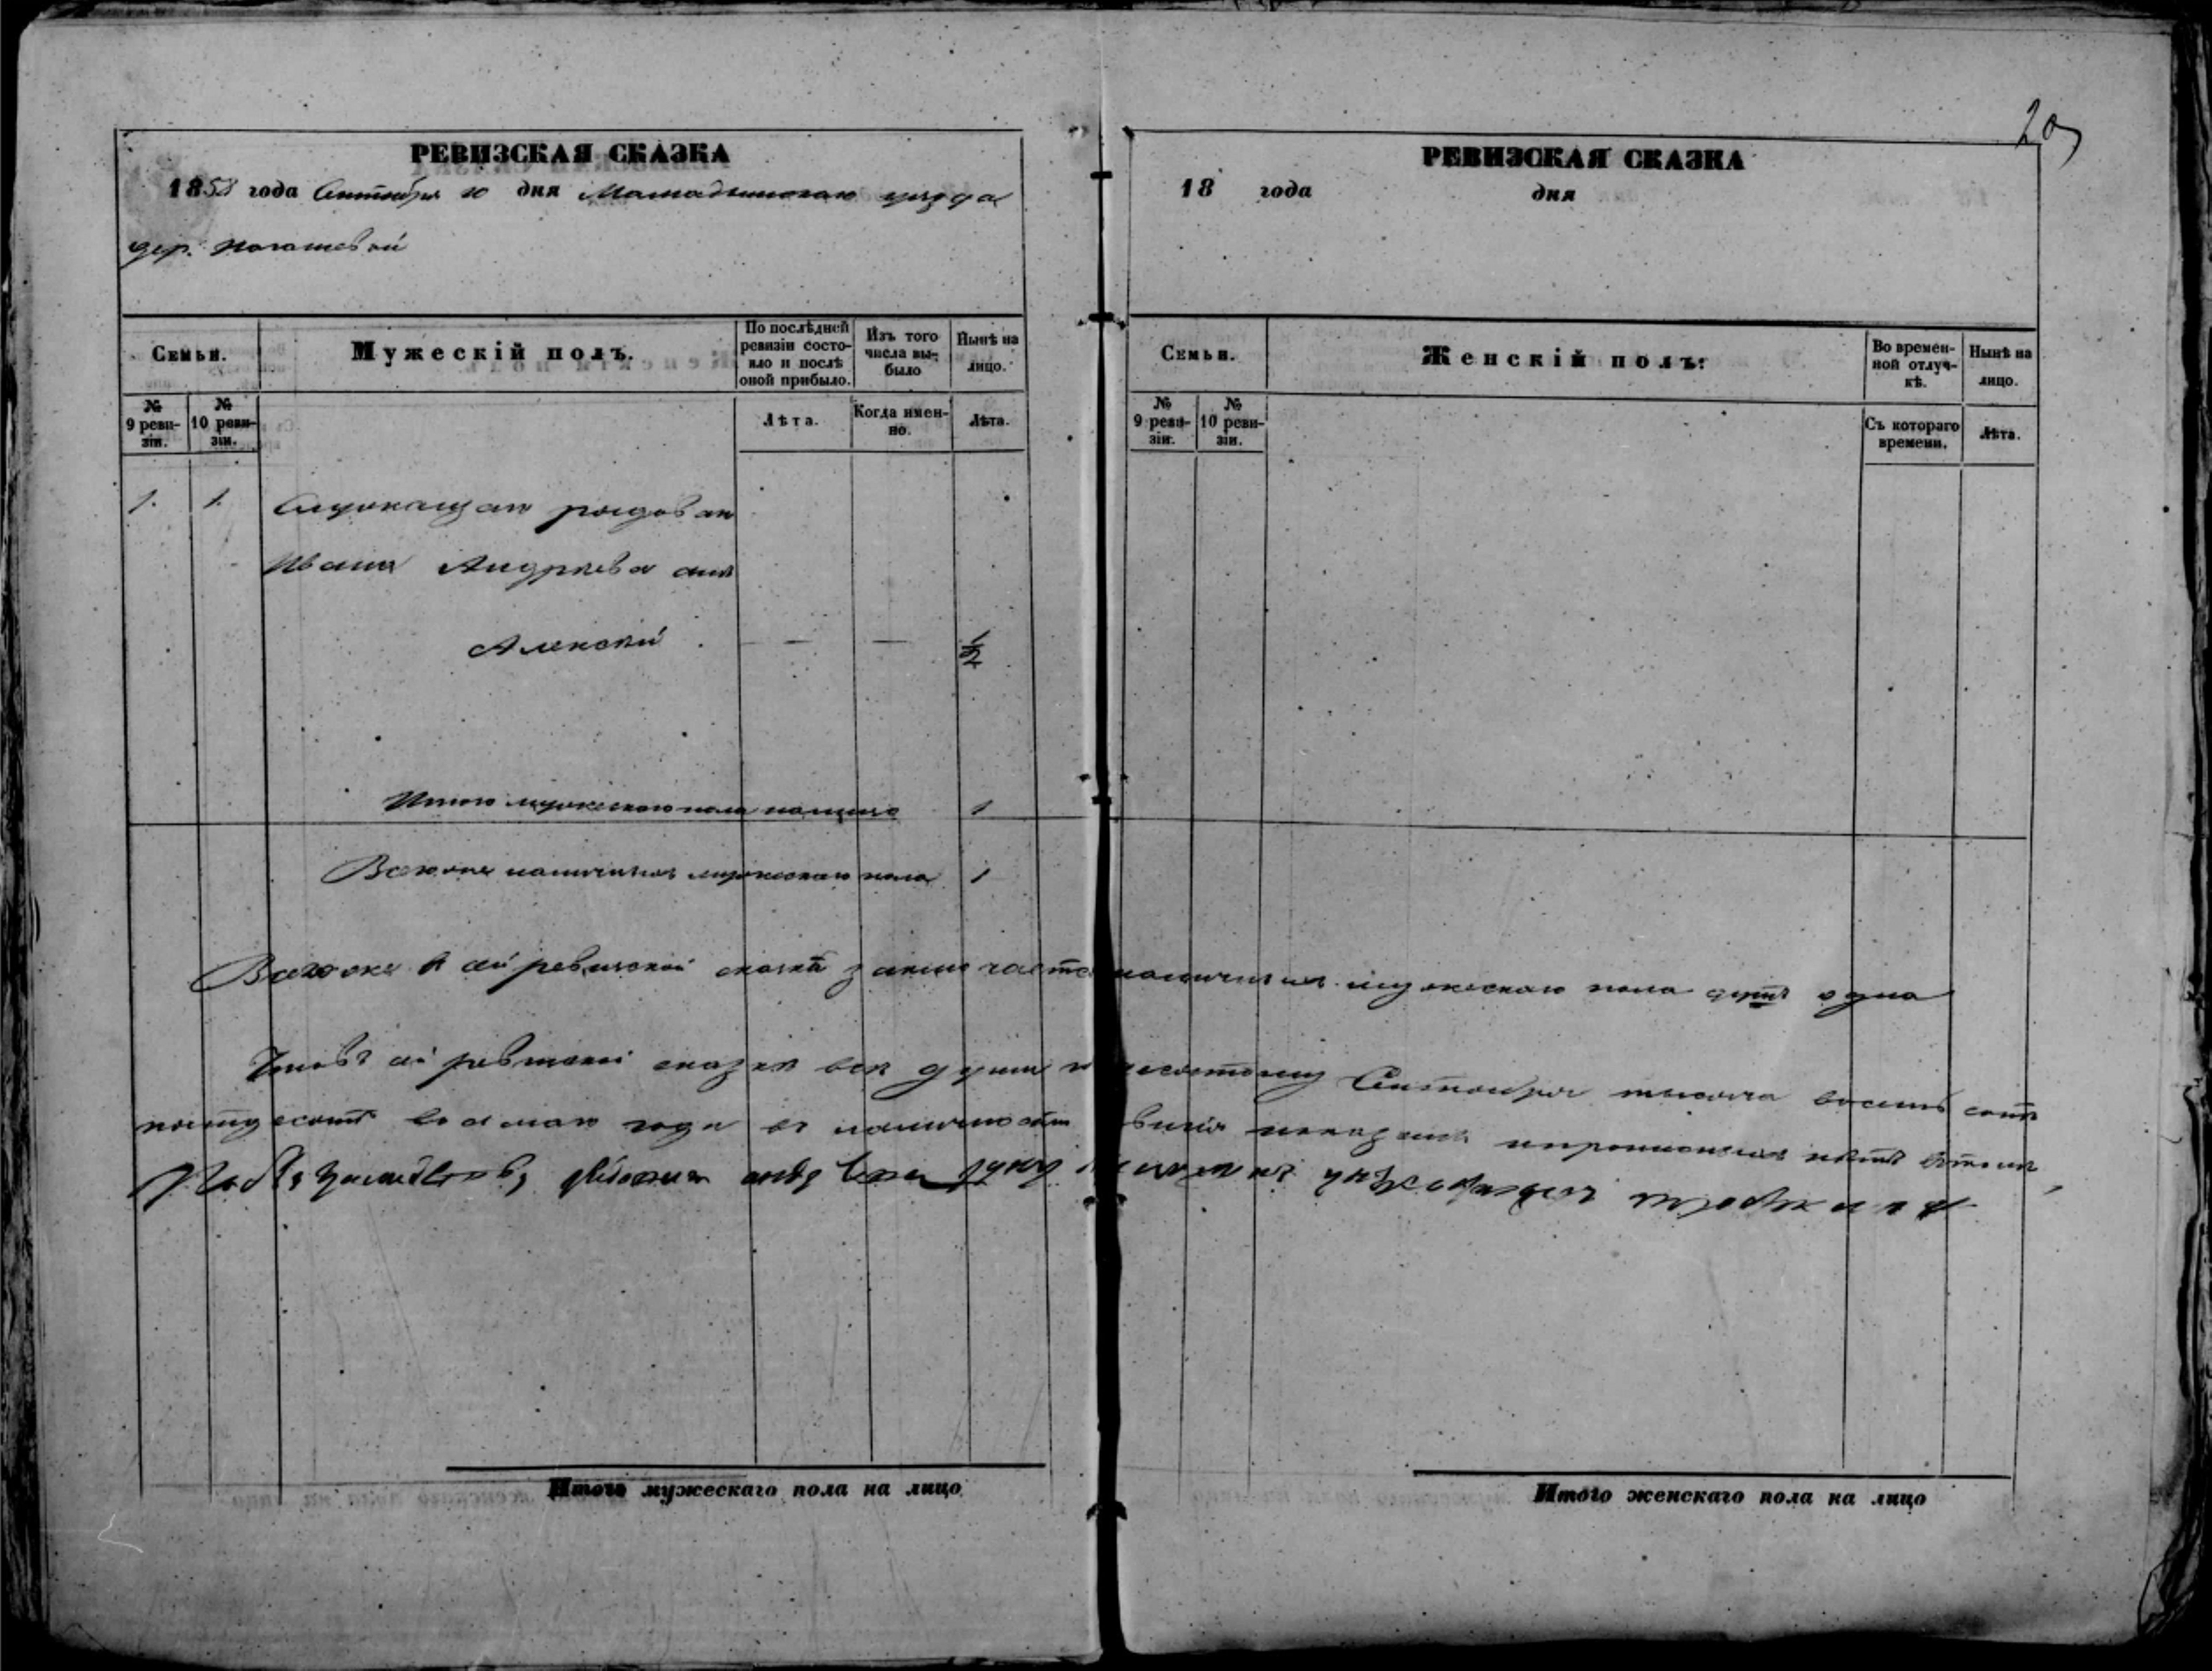 20
РЕВИЗСКАЯ СКАЗКА
1858 года Сентября 10 дня Мамадышскаго уезда
дер.
Семьи.
Мужескій полъ.
По послѣдней ревизіи состояло и послѣ оной прибыло.
Изъ того числа выбыло
Нынѣ на лицо.
№ 9 ревизіи.
№ 10 ревизіи.
Лѣта.
Когда именно.
Лѣта.
1. 1. Служащаго рядоваго
Ивана Андреева сынъ
Алексѣй — — 1/2
Итого мужескаго пола налицо 1
Всего же наличныхъ мужескаго пола 1
Всего же в сей ревизской сказкѣ заключается наличныхъ мужескаго пола душъ одна
сей ревизской сказкѣ все души к десятому Сентября тысяча восемь сотъ
пятьдесятъ восьмаго года в наличности показаны и пропискныхъ нѣтъ в томъ
Итого мужескаго пола на лицо
РЕВИЗСКАЯ СКАЗКА
18 года дня
Семьи.
Женскій полъ:
Во временной отлучкѣ.
Нынѣ на лицо.
№ 9 ревизіи.
№ 10 ревизіи.
Съ котораго времени.
Лѣта.
Итого женскаго пола на лицо